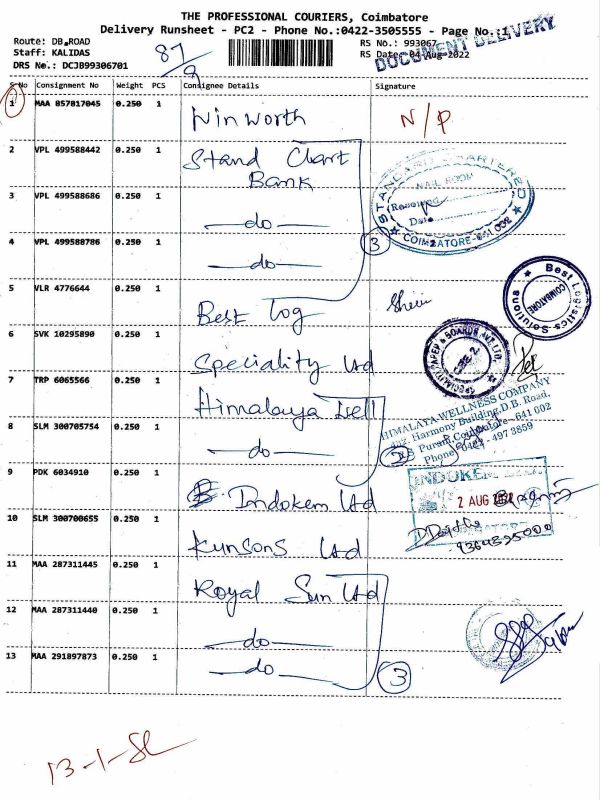 THE PROFESSIONAL COURIERS, Coimbatore
Delivery Runsheet - PC2 - Phone No.:0422-3505555 - Page No.:1
DOCUMENT DELIVERY
Route: DB.ROAD
RS No.: 993067
Staff: KALIDAS
RS Date: 04-Aug-2022
DRS No.: DCJB99306701
87/9
S No Consignment No Weight PCS Consignee Details Signature
1 MAA 857817045 0.250 1 Winworth N/P
2 VPL 499588442 0.250 1 Stand Chart
Bank
STANDARD CHARTERED
MAIL ROOM
Received
Date
COIMBATORE
3 VPL 499588686 0.250 1 —do—
4 VPL 499588786 0.250 1 —do— 3
5 VLR 4776644 0.250 1 Best Log
Best Logistics Solutions
COIMBATORE
6 SVK 10295890 0.250 1 Speciality Ltd
SPECIALITY PAPER & BOARDS PVT. LTD.
CBE-2
7 TRP 6065566 0.250 1 Himalaya
HIMALAYA WELLNESS COMPANY
Harmony Building, D.B. Road,
Puram, Coimbatore - 641 002
Phone: 0424 - 497 3859
8 SLM 300705754 0.250 1 —do—
9 PDK 6034910 0.250 1 Indokem Ltd
INDOKEM
2 AUG
10 SLM 300700655 0.250 1 Kunsons Ltd
11 MAA 287311445 0.250 1 Royal Sun Ltd
12 MAA 287311440 0.250 1 —do—
13 MAA 291897873 0.250 1 —do— 3
13-1-SL